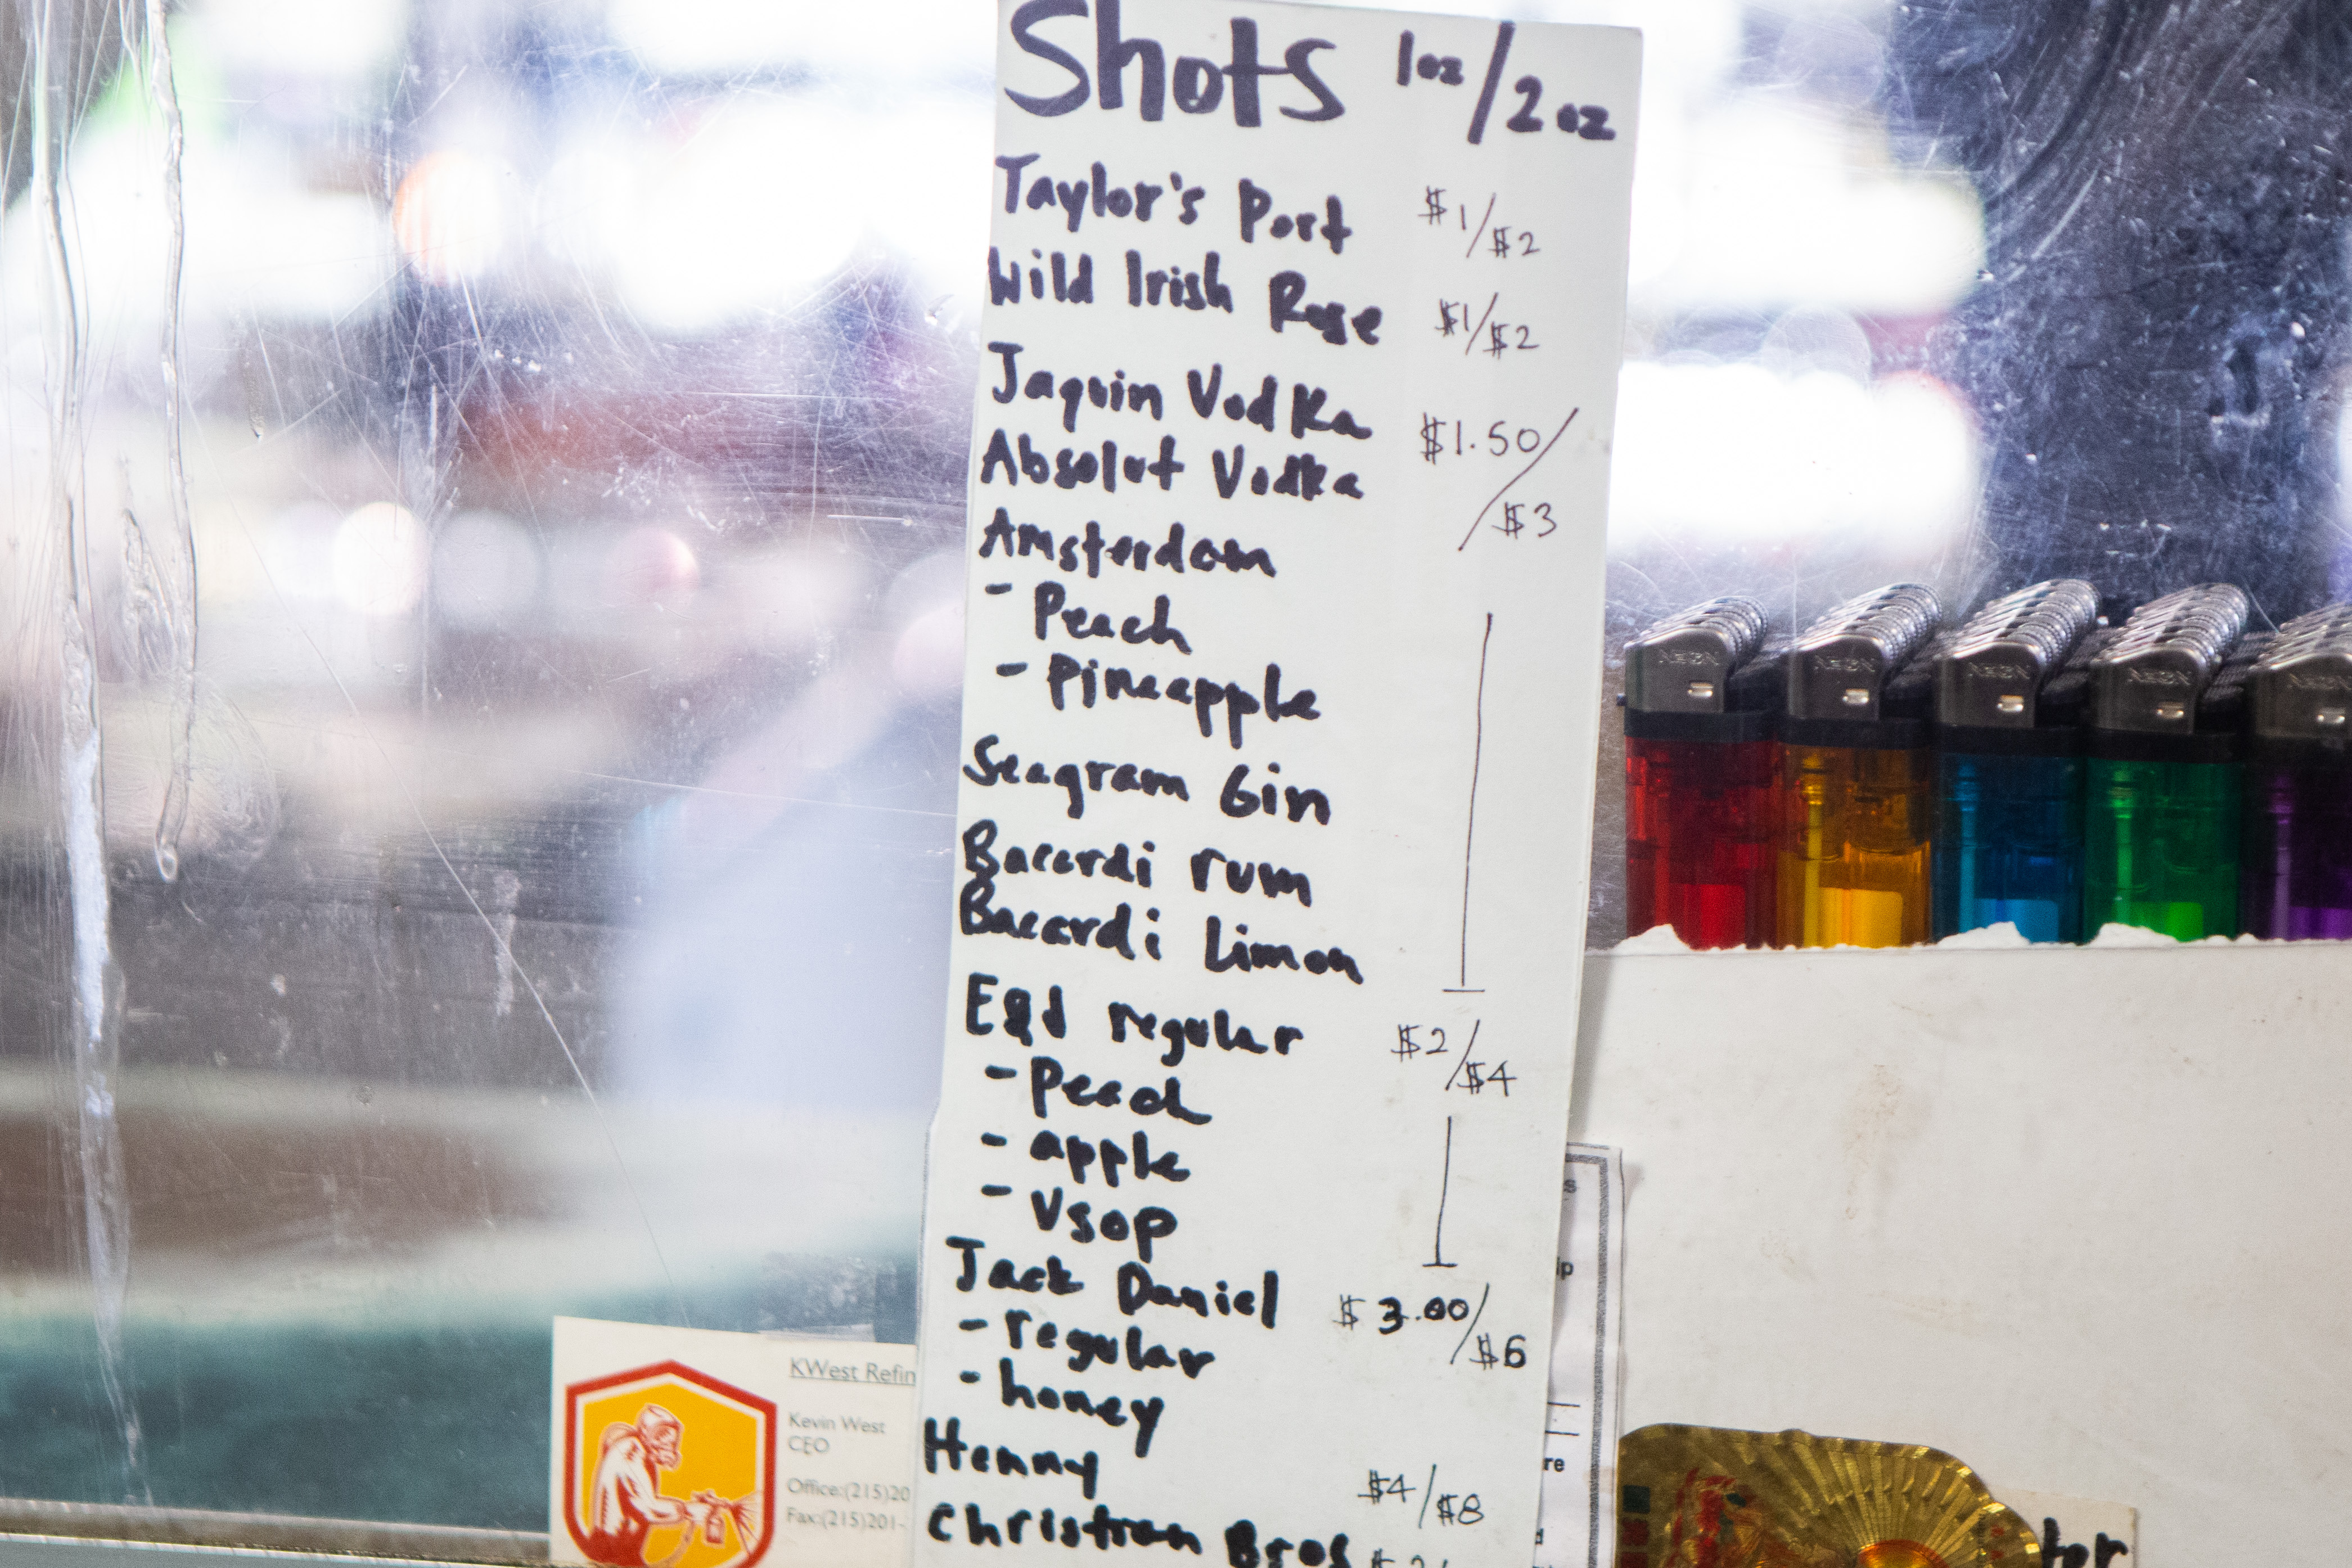 Shots 1oz/2oz
Taylor's Port $1/$2
Wild Irish Rose $1/$2
Jaquin Vodka $1.50/
Absolut Vodka $3
Amsterdam
- Peach
- Pineapple
Seagram Gin
Bacardi rum
Bacardi Limon
E&J regular $2/$4
- Peach
- apple
- Vsop
Jack Daniel $3.00/$6
- regular
- honey
Henny $4/$8
Christian Bros
KWest Refin
Kevin West
CEO
Office:(215)20
Fax:(215)201-
NEON
NEON
NEON
NEON